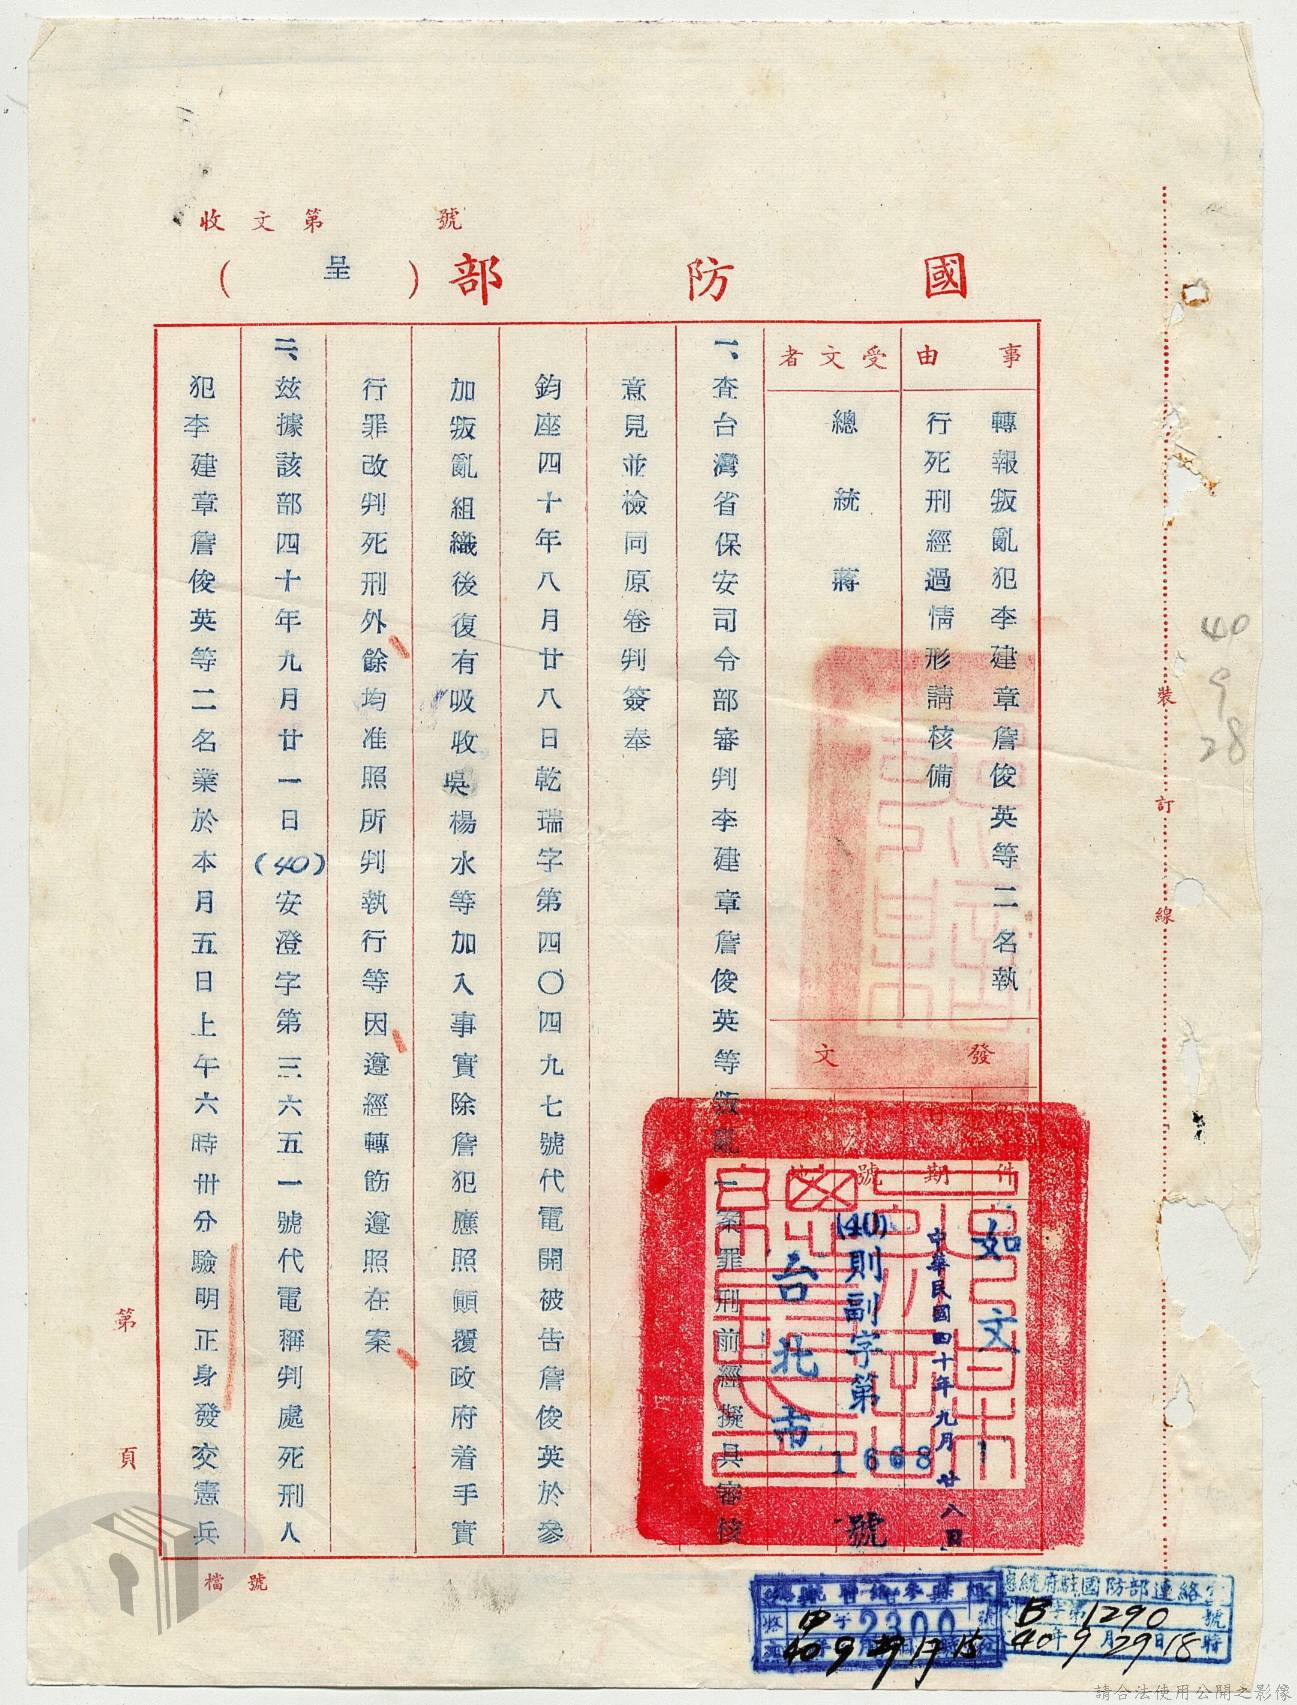 收文第　號
國防部（呈）
事由
轉報叛亂犯李建章詹俊英等二名執
行死刑經過情形請核備
受文者
總統　蔣
發文
附件
如文
日期
中華民國四十年九月廿八日
字號
(40)則副字第1668號
駐地
台北市
一、查台灣省保安司令部審判李建章詹俊英等叛亂一案罪刑前經擬具審核
意見並檢同原卷判簽奉
鈞座四十年八月廿八日乾瑞字第四〇四九七號代電開被告詹俊英於參
加叛亂組織後復有吸收吳楊水等加入事實除詹犯應照顛覆政府着手實
行罪改判死刑外餘均准照所判執行等因遵經轉飭遵照在案
二、茲據該部四十年九月廿一日(40)安澄字第三六五一號代電稱判處死刑人
犯李建章詹俊英等二名業於本月五日上午六時卅分驗明正身發交憲兵
第　頁
檔號
裝訂線
40
9
28
總統府駐國防部連絡室
B字第1290號
40年9月29日18時
甲字2300
40 9 29 17 15
請合法使用公開之影像